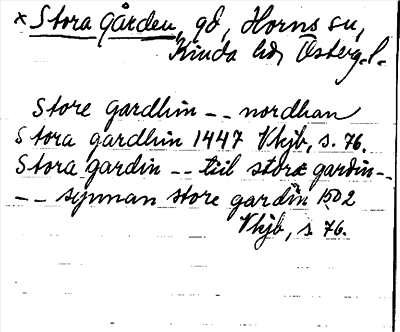 × Stora gården, gd, Horns sn,
Kinda hd, Österg. l.
Store gardhin -- nordhan
Stora gardhin 1447 Vhjb, s. 76.
Stora gardin -- tiil store gardin --
-- synnan store gardin 1502
Vhjb, s 76.